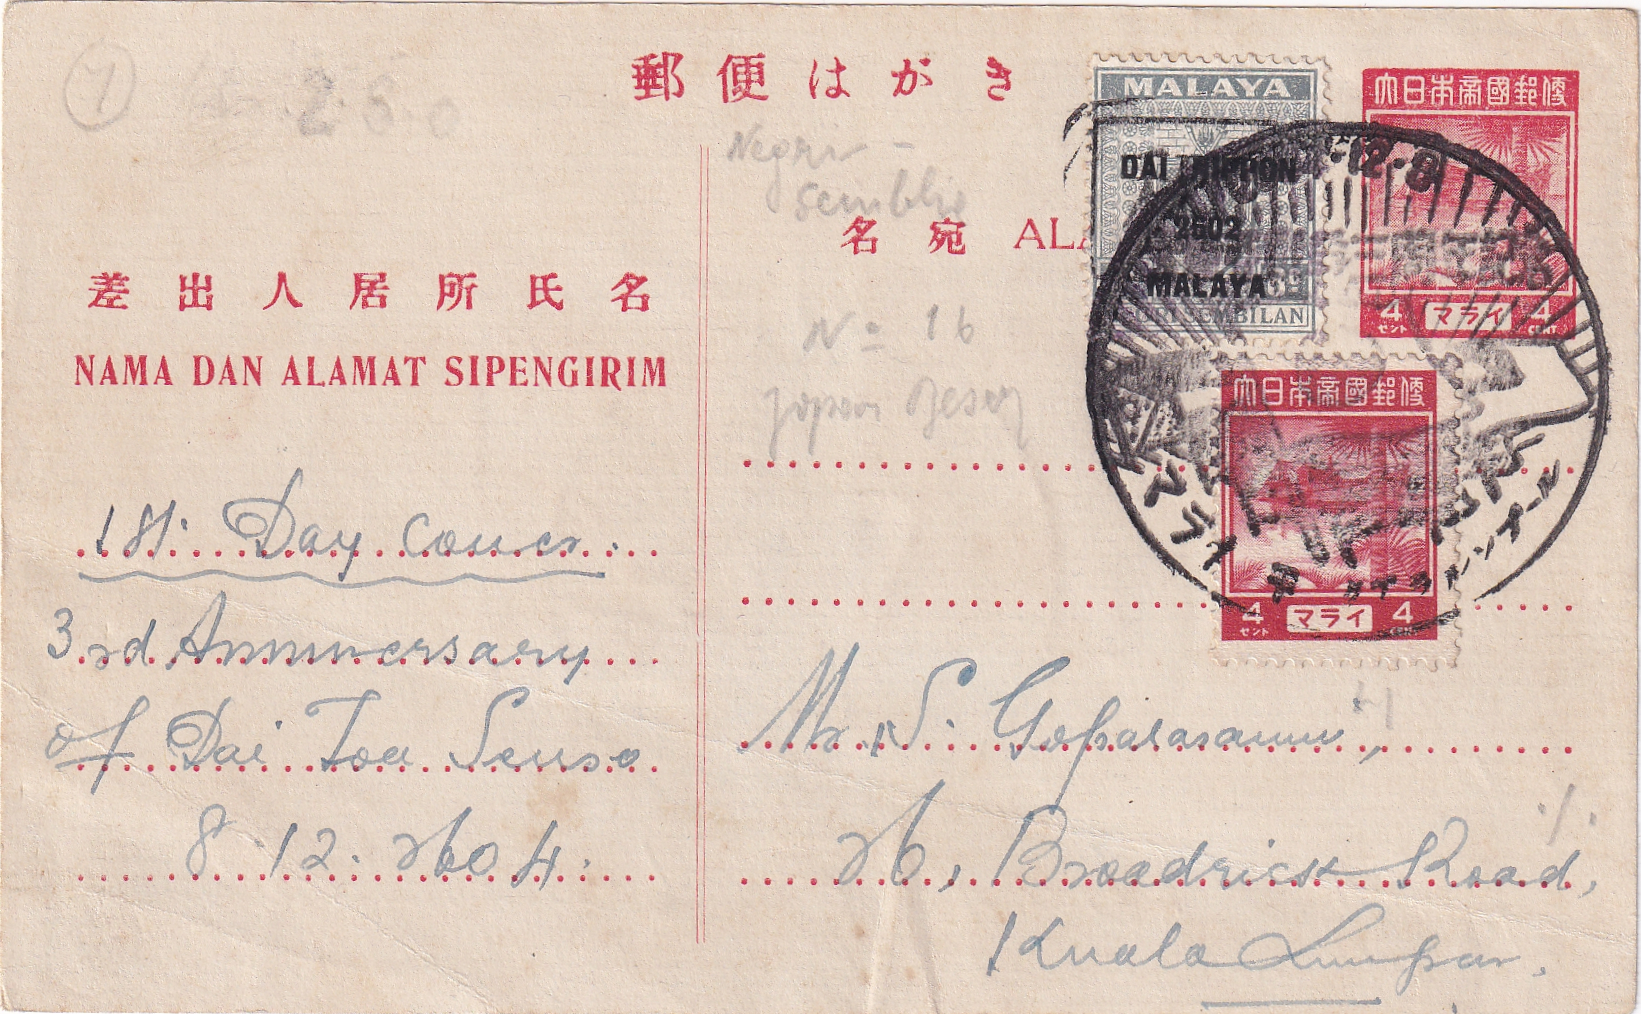 郵便はがき
7
Negri -
Sembilan
MALAYA
DAI NIPPON
2602
MALAYA
SEMBILAN
大日本帝國郵便
4 マライ 4
セント CENT
12·8
名宛 ALA
差出人居所氏名
NAMA DAN ALAMAT SIPENGIRIM
No 16
大日本帝國郵便
4 マライ 4
セント CENT
マライ
クアラルンプール
1st. Day Cover.
3rd Anniversary
of Dai Toa Senso
8.12.2604.
Mr. S. Goparasamu,
26, Broadrick Road,
Kuala Lumpur.